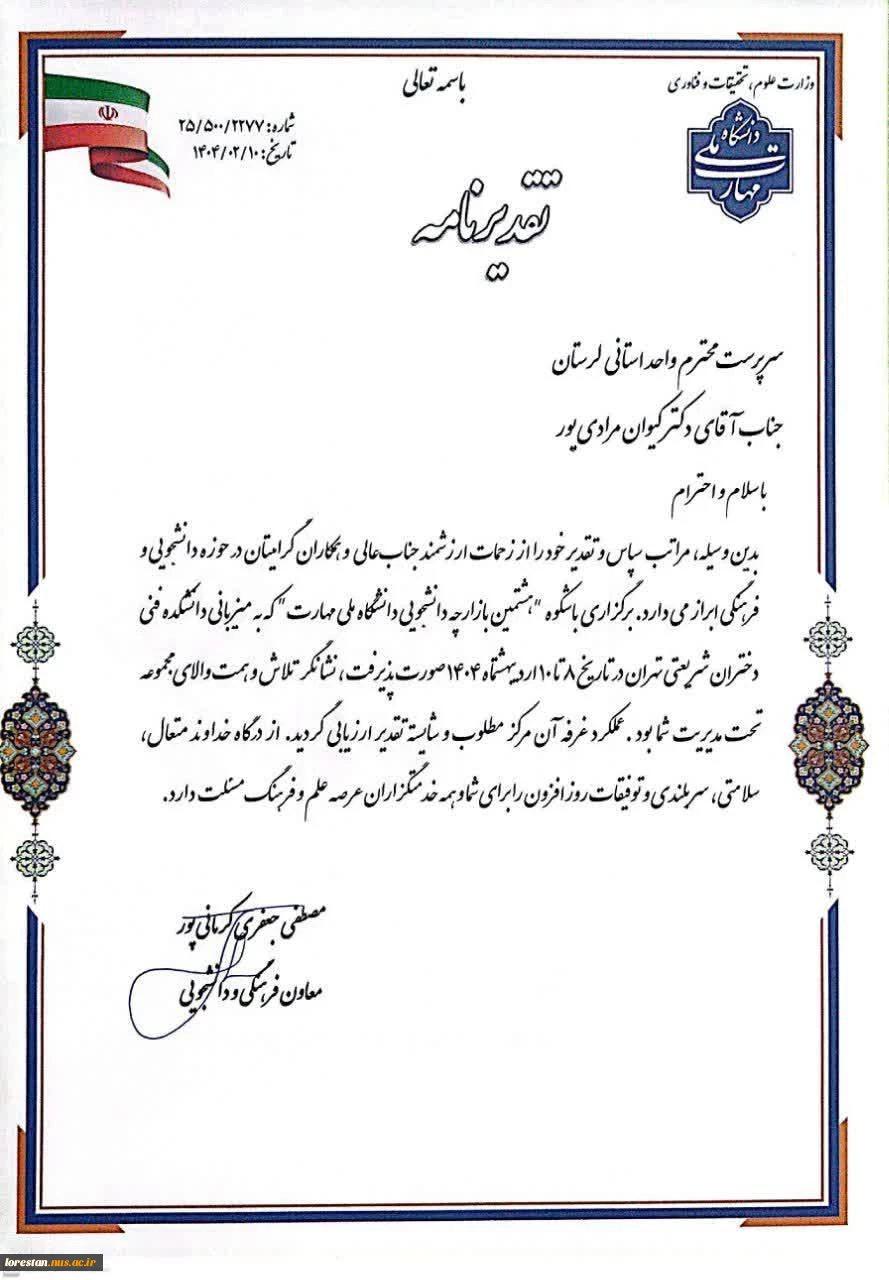 باسمه تعالی
وزارت علوم، تحقیقات و فناوری
دانشگاه
ملی
مهارت
شماره: ۲۵/۵۰۰/۲۲۷۷
تاریخ: ۱۴۰۴/۰۲/۱۰
تقدیرنامه
سرپرست محترم واحد استانی لرستان
جناب آقای دکتر کیوان مرادی پور
باسلام و احترام
بدین وسیله، مراتب سپاس و تقدیر خود را از زحمات ارزشمند جناب عالی و همکاران گرامیتان در حوزه دانشجویی و
فرهنگی ابراز می دارد. برگزاری باشکوه "هشتمین بازارچه دانشجویی دانشگاه ملی مهارت" که به میزبانی دانشکده فنی
دختران شریعتی تهران در تاریخ ۸ تا ۱۰ اردیبهشتماه ۱۴۰۴ صورت پذیرفت، نشانگر تلاش و همت والای مجموعه
تحت مدیریت شما بود. عملکرد غرفه آن مرکز مطلوب و شایسته تقدیر ارزیابی گردید. از درگاه خداوند متعال،
سلامتی، سربلندی و توفیقات روز افزون را برای شما و همه خدمتگزاران عرصه علم و فرهنگ مسئلت دارد.
مصطفی جعفری کرمانی پور
معاون فرهنگی و دانشجویی
lorestan.nus.ac.ir